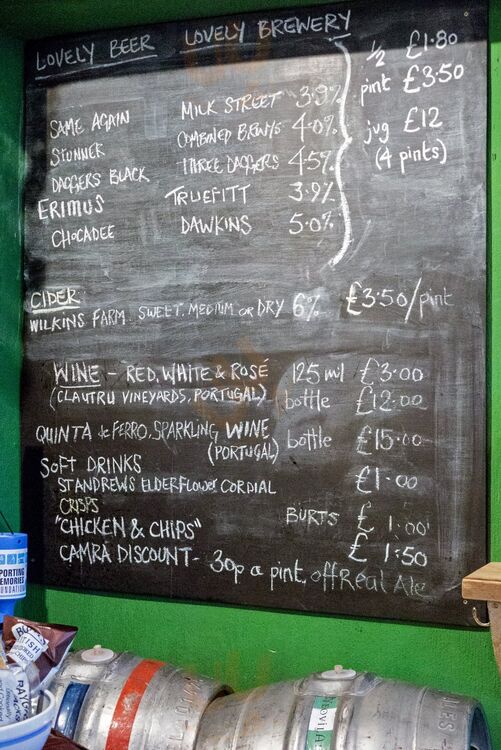 LOVELY BEER LOVELY BREWERY
1/2 £1.80
pint £3.50
jug £12
(4 pints)
SAME AGAIN MILK STREET 3.9%
STUNNER COMBINED BREWS 4.0%
DAGGERS BLACK THREE DAGGERS 4.5%
ERIMUS TRUEFITT 3.9%
CHOCADEE DAWKINS 5.0%
CIDER
WILKINS FARM. SWEET, MEDIUM OR DRY 6% £3.50/pint
WINE - RED, WHITE & ROSÉ 125ml £3.00
(CLAUTRU VINEYARDS, PORTUGAL) bottle £12.00
QUINTA de FERRO, SPARKLING WINE bottle £15.00
(PORTUGAL)
SOFT DRINKS
ST ANDREWS ELDERFLOWER CORDIAL £1.00
CRISPS BURTS £1.00
"CHICKEN & CHIPS" £1.50
CAMRA DISCOUNT - 30p a pint, off Real Ale